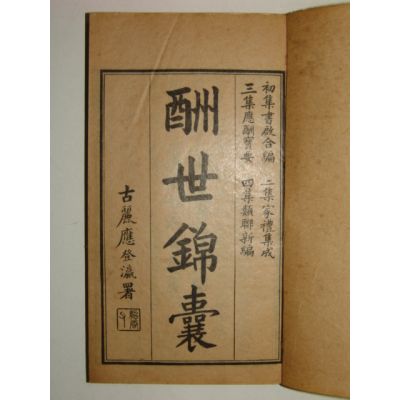 初集書啟合編　二集家禮集成
三集應酬寶要　四集類聯新編
酬世錦囊
古麗應登瀛署